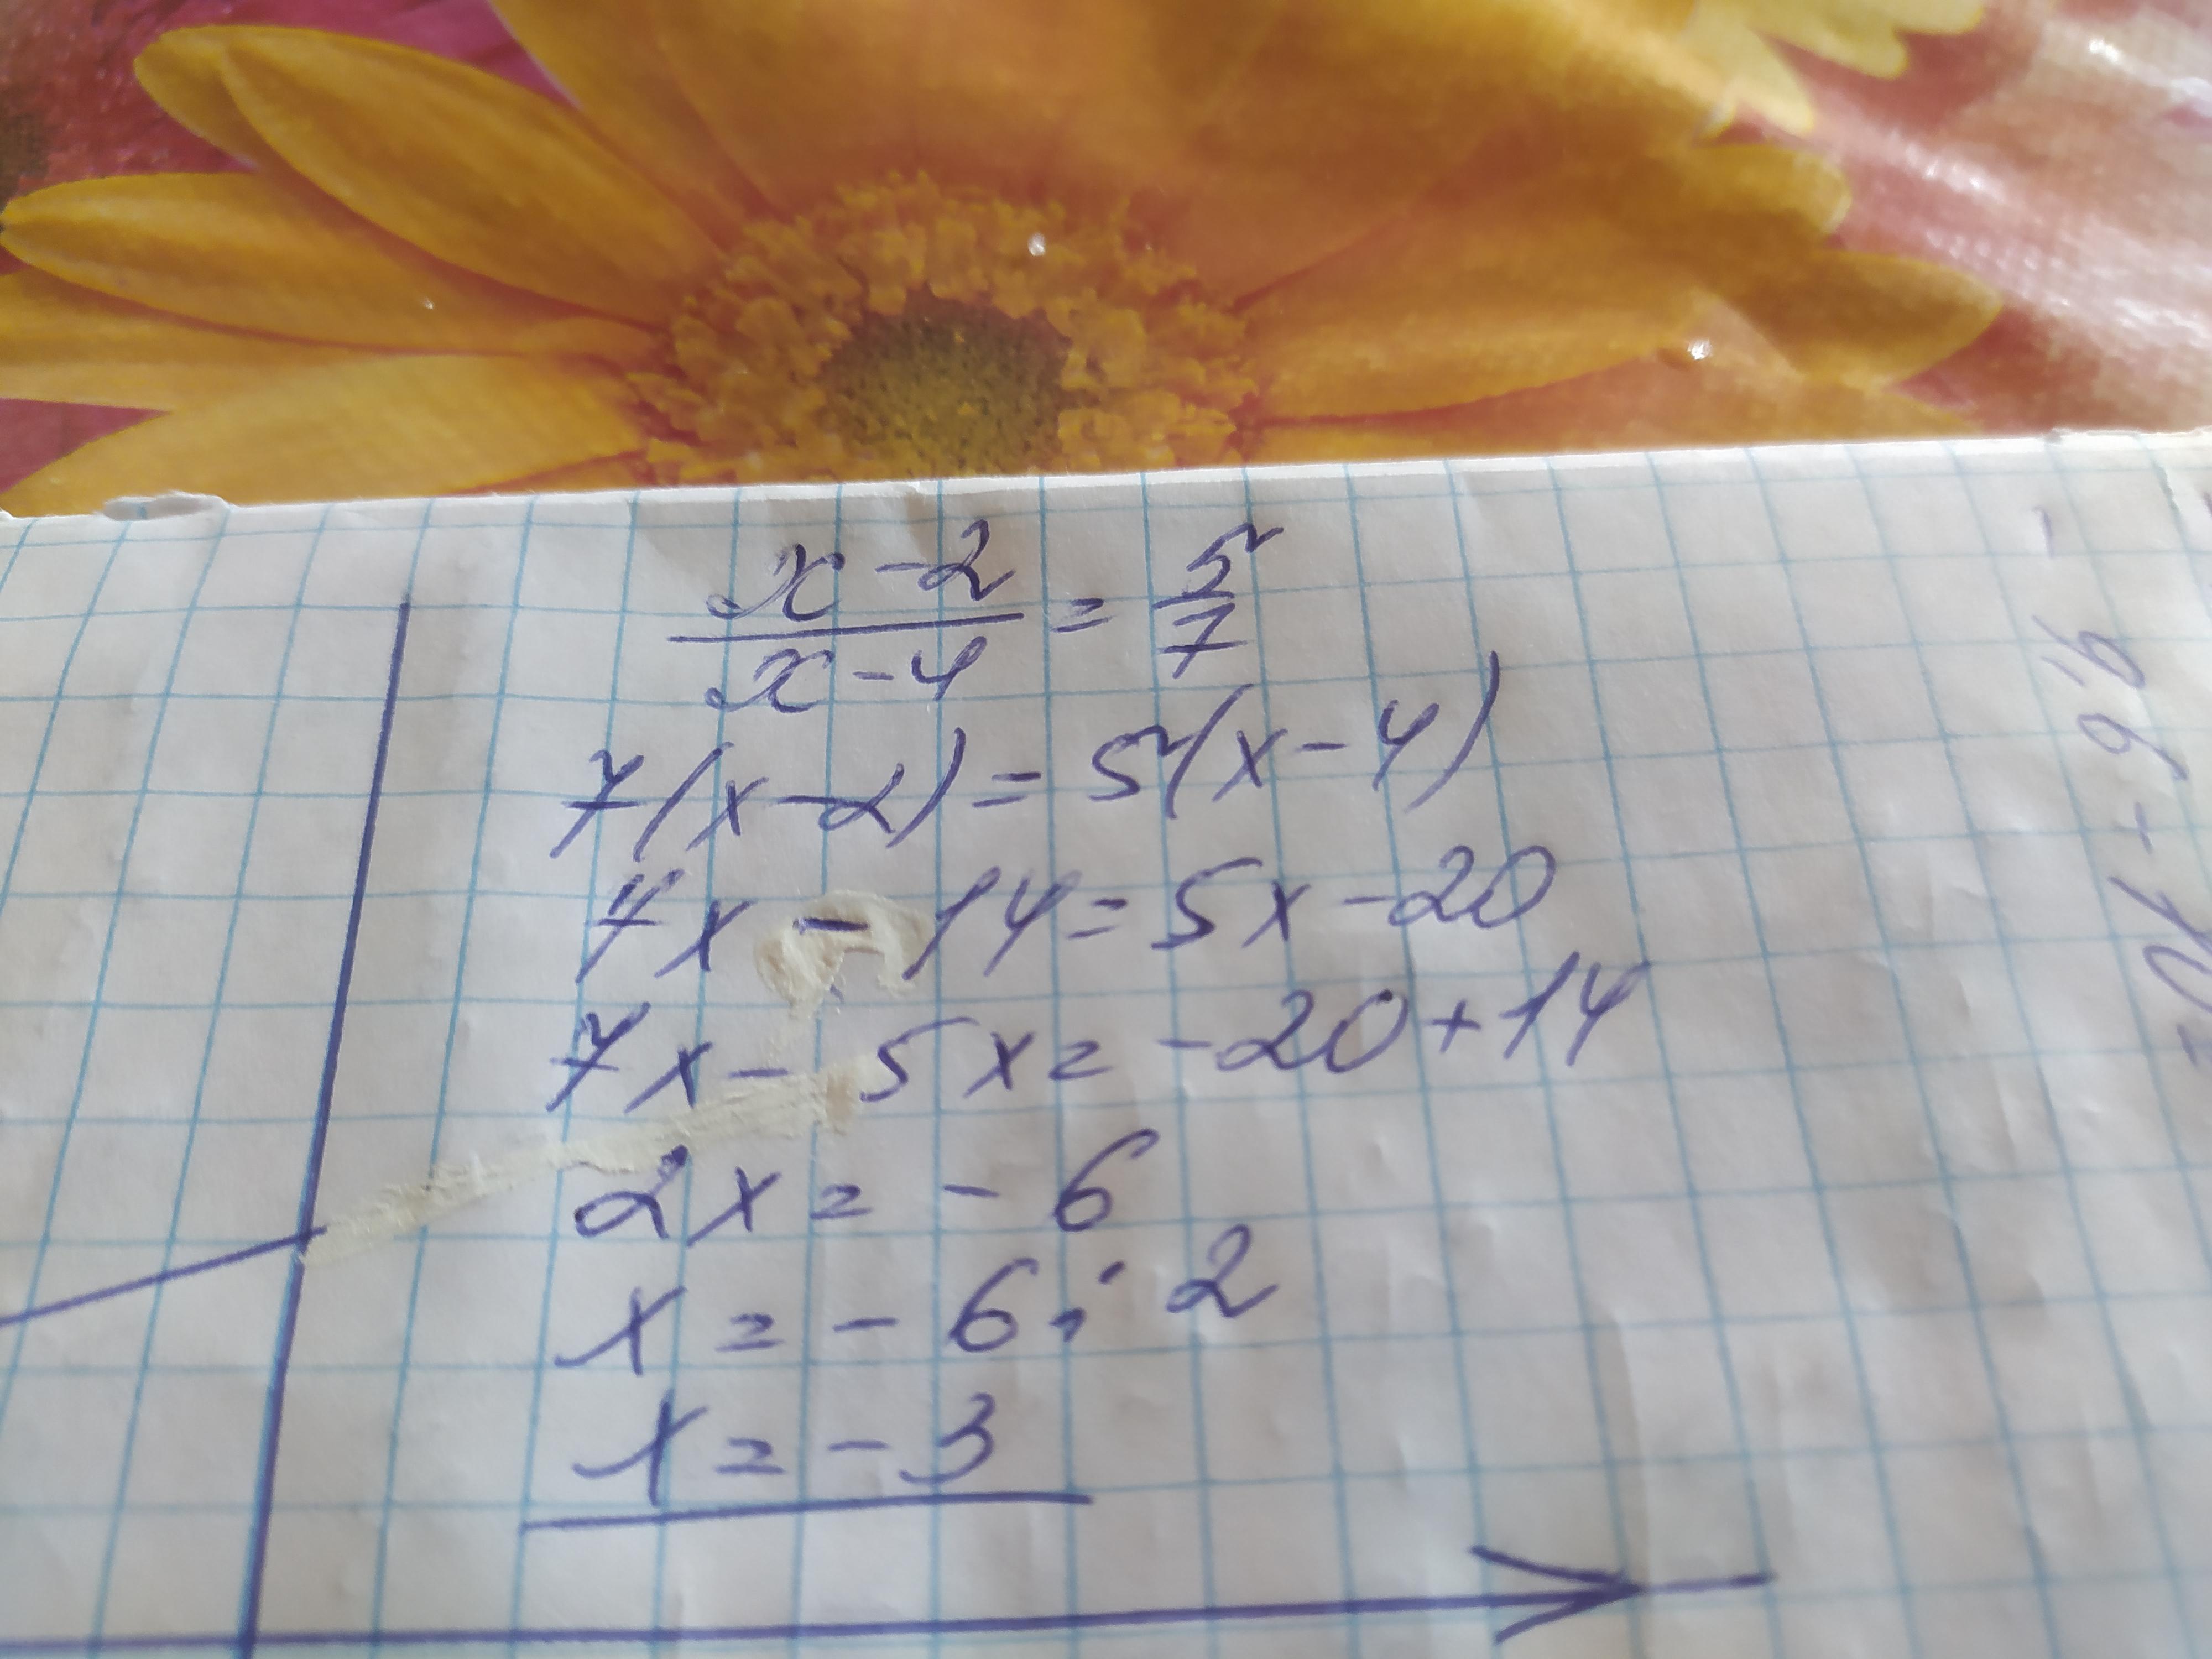 x-2/x-4 = 5/7
7(x-2)=5(x-4)
7x-14=5x-20
7x-5x=-20+14
2x=-6
x=-6:2
x=-3